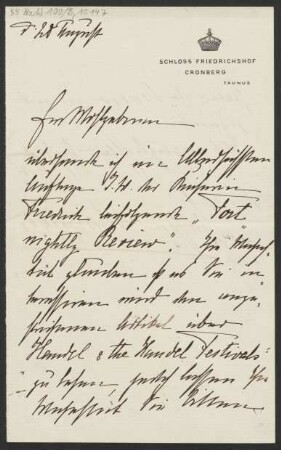 SCHLOSS FRIEDRICHSHOF
CRONBERG
TAUNUS
d. 28 August
Euer Wohlgeboren
übersende ich im Allerhöchsten
Auftrage I.M. der Kaiserin
Friedrich beifolgende „Fort
nightly Review". Ihre Majes-
tät glauben es Sie in
teressieren wird den
Artikel über
Handel & the Handel Festivals
zu lesen, jedoch lassen Ihre
Majestät Sie bitten